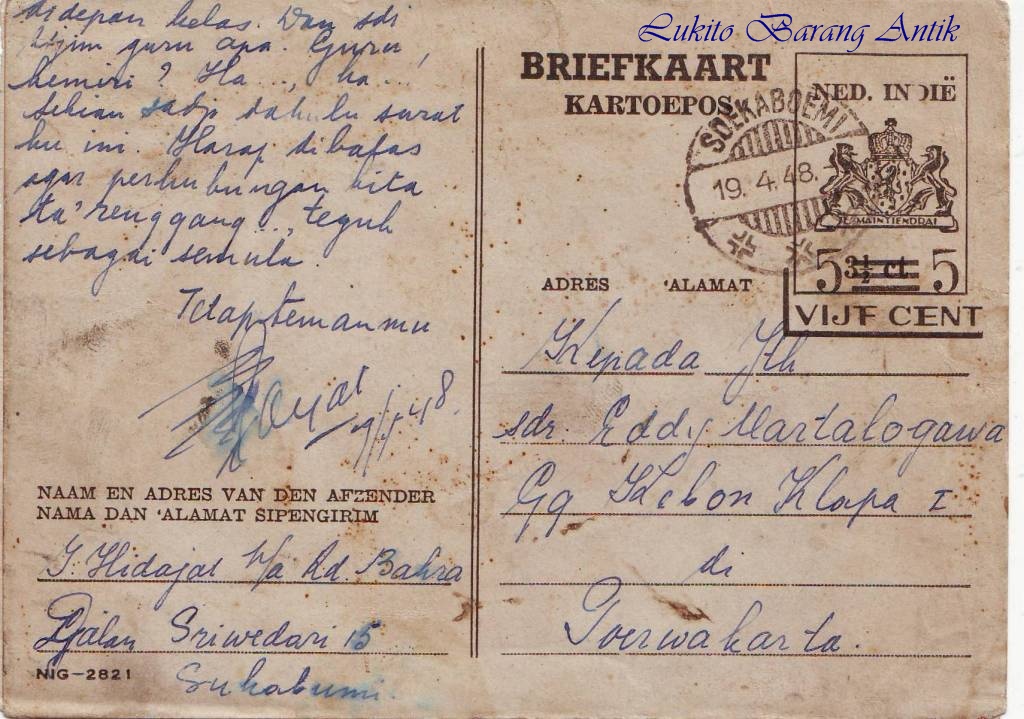 didepan kelas. Dan sdi
guru apa. Guru
kemiri? Ha..., ha...,
Sekian sadja dahulu surat
ku ini. Harap dibalas
agar perhubungan kita
ta' renggang..., teguh
sebagai semula.
Tetap temanmu
19/4 48.
NAAM EN ADRES VAN DEN AFZENDER
NAMA DAN 'ALAMAT SIPENGIRIM
J. Hidajat p/a Rd. Bahra
Djalan Sriwedari 15
Sukabumi.
NIG-2821
Lukito Barang Antik
BRIEFKAART
KARTOEPOS
SOEKABOEMI
19. 4. 48.
NED. INDIË
JE MAINTIENDRAI
5 3½ ct. 5
VIJF CENT
ADRES 'ALAMAT
Kepada Jth
sdr. Eddy Martalogawa
Gg Kebon Klapa I
di
Poerwakarta.